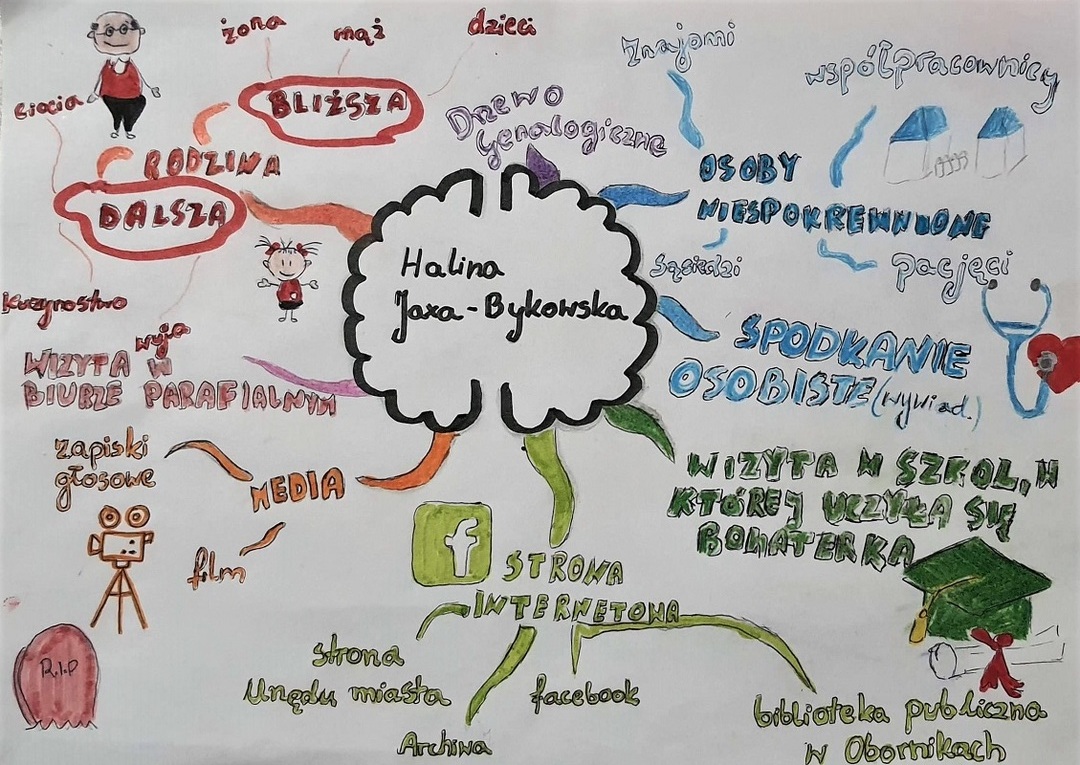 Halina
Jaxa-Bykowska
Drzewo
Genalogiczne
żona
mąż
dzieci
BLIŻSZA
RODZINA
ciocia
DALSZA
Kuzynostwo
wuja
WIZYTA W
BIURZE PARAFIALNYM
MEDIA
zapiski
głosowe
film
R.I.P
f
STRONA
INTERNETOWA
strona
Urzędu miasta
Archiwa
facebook
biblioteka publiczna
w Obornikach
WIZYTA W SZKOL, W
KTÓREJ UCZYŁA SIĘ
BOHATERKA
SPODKANIE
OSOBISTE (wywiad.)
OSOBY
NIESPOKREWNIONE
Znajomi
współpracownicy
sąsiedzi
pacjęci